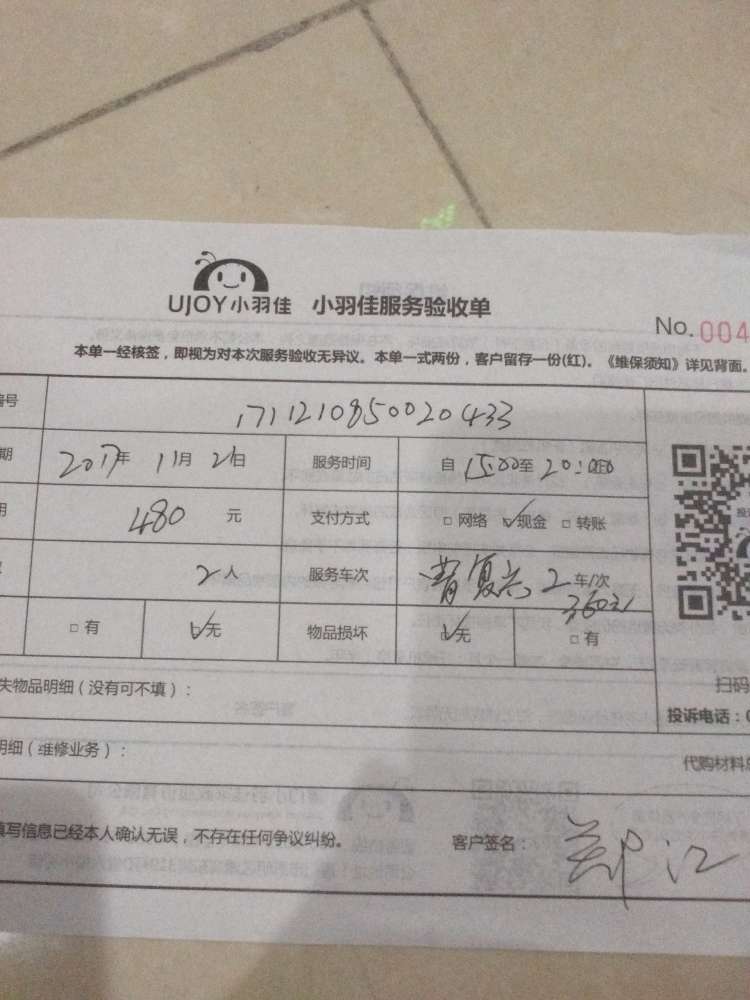 UJOY小羽佳 小羽佳服务验收单
No. 004
本单一经核签，即视为对本次服务验收无异议。本单一式两份，客户留存一份(红)。《维保须知》详见背面。
编号 171121085002043​3
期 2017年 11月 21日 服务时间 自 15:00至 20:00
用 480 元 支付方式 □ 网络 ☑现金 □ 转账
2人 服务车次 2车/次
360元
□ 有 ☑无 物品损坏 ☑无 □ 有
失物品明细（没有可不填）：
扫码
投诉电话：0
明细（维修业务）：
代购材料总
填写信息已经本人确认无误，不存在任何争议纠纷。 客户签名：